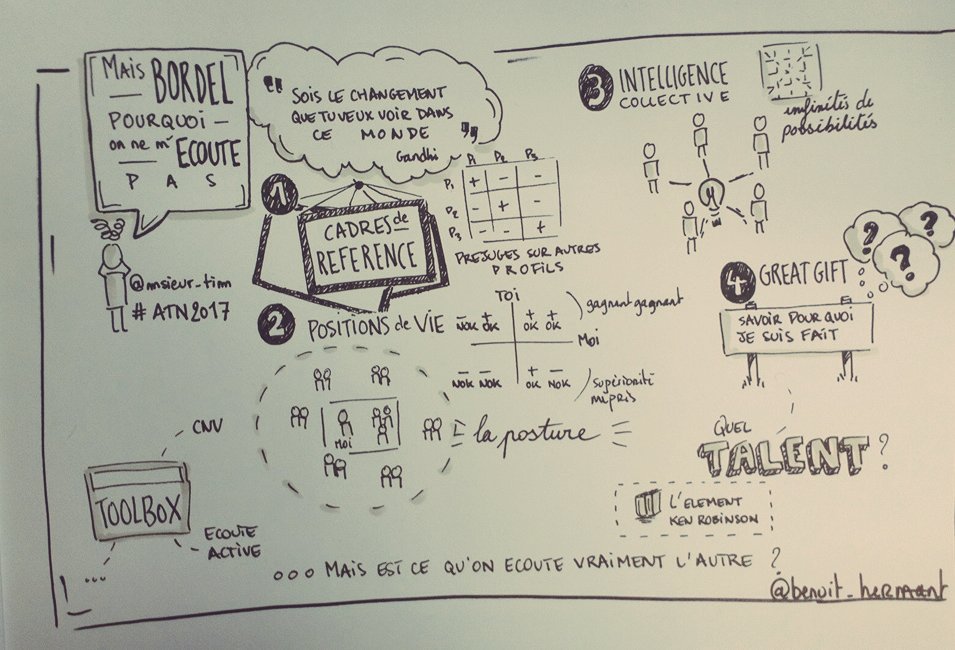 MAIS BORDEL
POURQUOI —
on ne m' ECOUTE
P A S
@msieur_tim
#ATN2017
" SOIS LE CHANGEMENT
QUE TU VEUX VOIR DANS
CE MONDE "
Gandhi
1
CADRES de
REFERENCE
P1 P2 P3
P1 + - -
P2 - + -
P3 - - +
PREJUGES SUR AUTRES
PROFILS
2 POSITIONS de VIE
Toi
- +
NOK OK
+ +
OK OK
gagnant gagnant
Moi
- -
NOK NOK
+ -
OK NOK
supériorité
mépris
Moi
la posture
3 INTELLIGENCE
COLLECTIVE
infinités de
possibilités
4 GREAT GIFT
? ? ?
SAVOIR POURQUOI
JE SUIS FAIT
QUEL
TALENT ?
L'ELEMENT
KEN ROBINSON
CNV
TOOLBOX
ECOUTE
ACTIVE
...
ooo MAIS EST CE QU'ON ECOUTE VRAIMENT L'AUTRE ?
@benoit_hermant